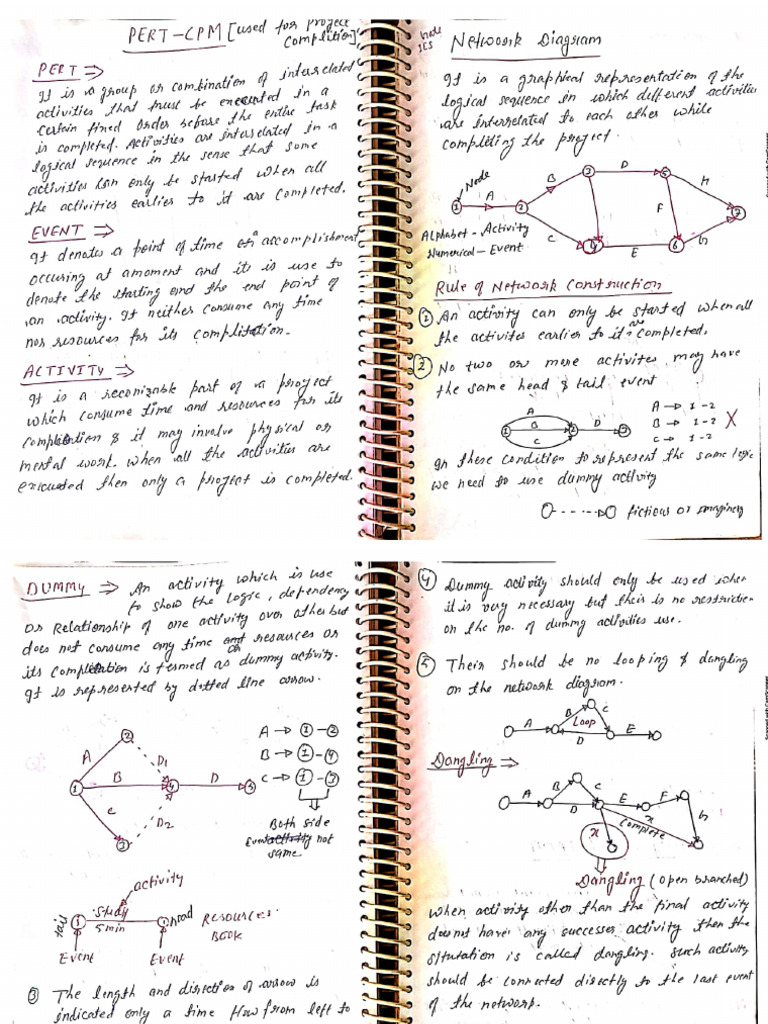 PERT-CPM [used for project
Complition]
PERT ⇒
It is a group or combination of interrelated
activities that must be executed in a
certain fixed order before the entire task
is completed. Activities are interrelated in a
logical sequence in the sense that some
activities can only be started when all
the activities earlier to it are completed.
EVENT ⇒
It denotes a point of time or accomplishment
occuring at amoment and its is use to
denote the starting and the end point of
an activity. It neither consume any time
nor resources for its complitation.
ACTIVITY ⇒
It is a reconizable part of a project
which consume time and resources for its
completion & it may involve physical or
mental work. when all the activities are
executed then only a project is completed.
Network Diagram
It is a graphical representation of the
logical sequence in which different activities
are interrelated to each other while
completing the project.
Node
1 A 2 B 3 D 5 H 7
C 4 E 6 F G
Alphabet - Activity
Numerical - Event
Rule of Network Construction
① An activity can only be started when all
the activites earlier to it are completed.
② No two or more activites may have
the same head & tail event
A
1 B 2 D 3
C
A → 1-2
B → 1-2 X
C → 1-2
In these condition to represent the same logic
we need to use dummy activity
fictious or imaginery
DUMMY ⇒ An activity which is use
to show the logic, dependency
or Relationship of one activity over other but
does not consume any time or resources or
its completation is termed as dummy activity.
It is represented by dotted line arrow.
2
A D1
1 B 4 D 5
C D2
3
A → ①-②
B → ①-④
C → ①-③
Both side
Event activity not
same.
activity
tail 1 Study head Resources
5 min BOOK
Event Event
③ The length and direction of arrow is
indicated only a time flow from left to
④ Dummy activity should only be used when
it is very necessary but their is no restriction
on the no. of dummy activities use.
⑤ Their should be no looping & dangling
on the network diagram.
A B C Loop D E
Dangling ⇒
A B C D E F G
x x complete
Dangling (open branched)
when activity other than the final activity
doesnot have any successer activity then the
situtation is called dangling. such activity
should be connected directly to the last event
of the network.